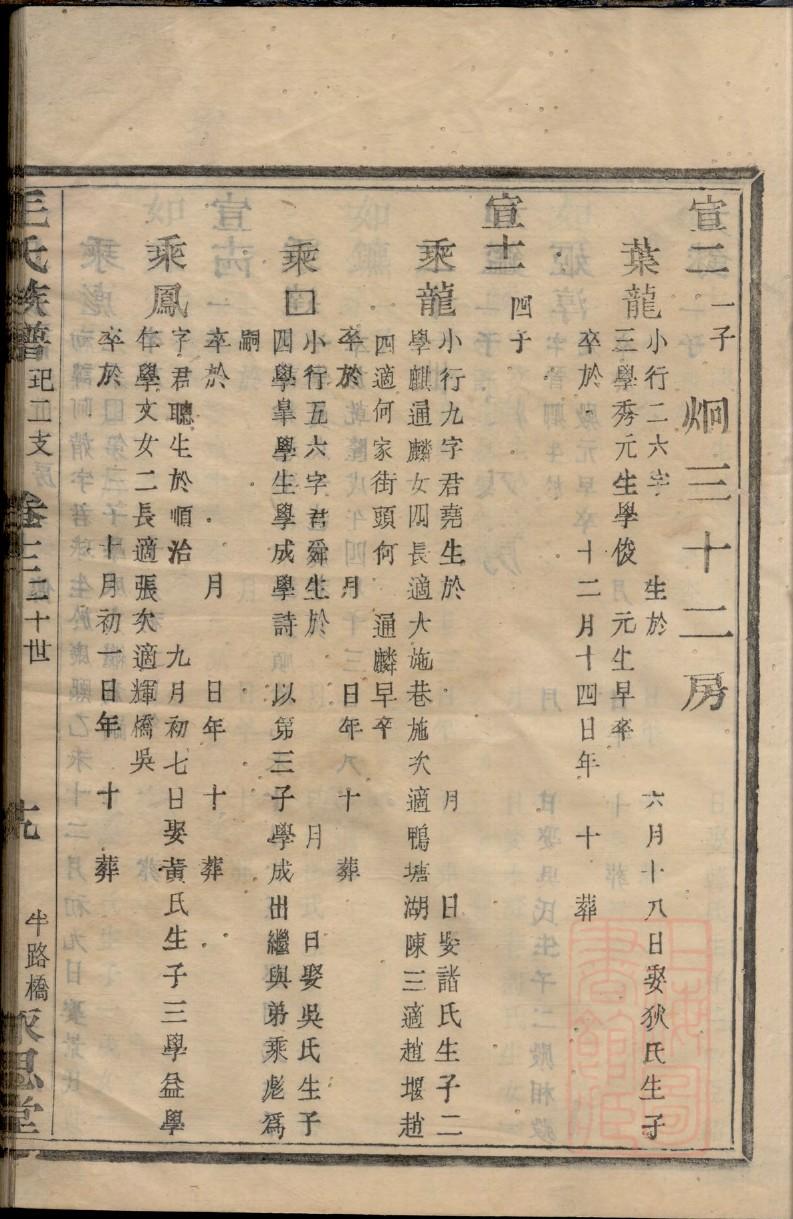 宣二一子 炯三十二房
葉龍小行二六字 生於 六月十八日娶狄氏生子
三學秀元生學俊 元生早卒
卒於 十二月十四日年 十 葬
宣十二四子
乘龍小行九字君堯生於 月 日娶諸氏生子二
學麒通麟女四長適大施巷施次適鴨塘湖陳三適趙堰趙
四適何家街頭何 通麟早卒
卒於 月 日年八十 葬
乘囗小行五六字君舜生於 月 日娶吳氏生子
四學皐學生學成學詩 以第三子學成出繼與弟乘彪爲
嗣
卒於 月 日年 十 葬
乘鳳字君聰生於順治 九月初七日娶黃氏生子三學益學
仁學文女二長適張次適輝橋吳
卒於 十月初一日年 十 葬
王氏族譜 玘二支 卷十三 二十世 十九 牛路橋 永思堂